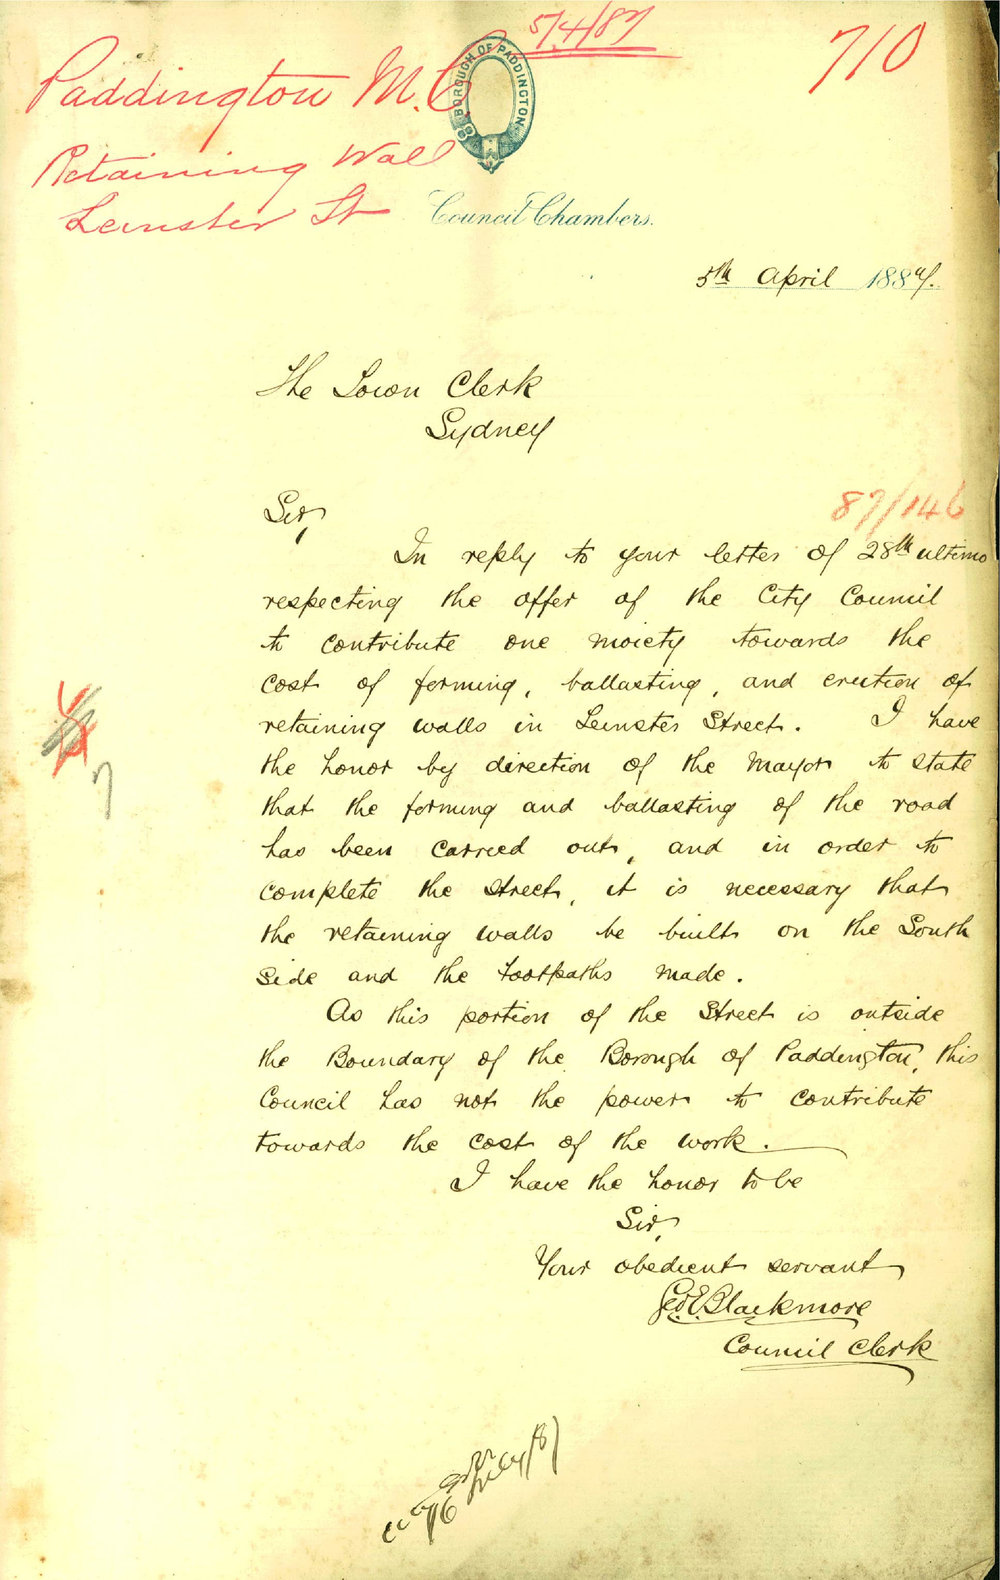 5/4/87
710
Paddington M.C.
BOROUGH OF PADDINGTON
Retaining Wall
Leinster St
Council Chambers.
5th April 1887.
The Town Clerk
Sydney
Sir,
87/146
In reply to your letter of 28th ultimo
respecting the offer of the City Council
to contribute one moiety towards the
cost of forming, ballasting, and erection of
retaining walls in Leinster Street. I have
the honor by direction of the Mayor to state
that the forming and ballasting of the road
has been carried out, and in order to
complete the street, it is necessary that
the retaining walls be built on the South
Side and the footpaths made.
As this portion of the Street is outside
the Boundary of the Borough of Paddington, this
Council has not the power to contribute
towards the cost of the work.
I have the honor to be
Sir,
Your obedient servant
Geo. E. Blackmore
Council Clerk